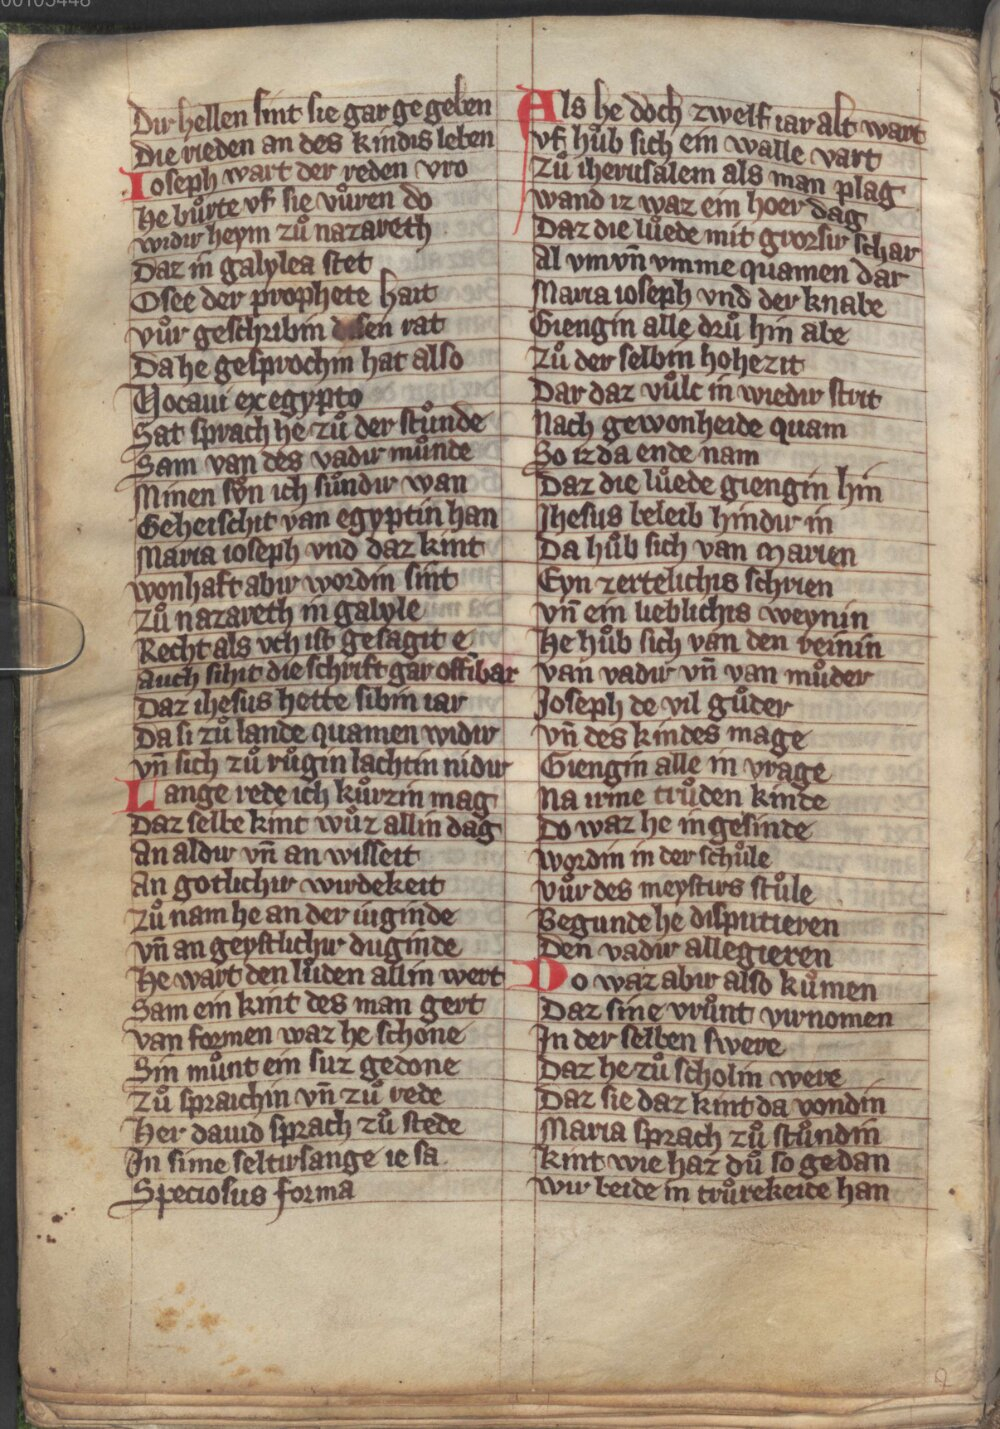 Dir hellen sint sie gar gegeben
Die rieden an des kindis leben
Ioseph wart der reden vro
He bůrte vf sie vůren do
widir heym zů nazareth
Daz in galylea stet
Osee der prophete hait
vůr geschribin disen rat
Da he gesprochin hat also
Vocaui ex egypto
Sat sprach he zů der stůnde
Sam van des vadir můnde
Minen sůn ich sůndir wan
Geheischit van egyptin han
Maria ioseph vnd daz kint
wonhaft abir wordin sint
zů nazareth in galyle
Recht als vch ist gesagit e
auch sihit die schrift gar offibar
Daz ihesus hette sibin iar
Da si zů lande quamen widir
vn̄ sich zů růgin lachtin nidir
Lange rede ich kůrzin mag
Daz selbe kint wůz allin dag
an aldir vn̄ an wisseit
an gotlichir wirdekeit
zů nam he an der iuginde
vn̄ an geystlichir duginde
He wart den lůden allin wert
Sam ein kint des man gert
van formen waz he schone
Sin můnt ein suz gedone
zů spraichin vn̄ zů rede
Her dauid sprach zů stede
In sime seltirsange ie sa
Speciosus forma
Als he doch zwelf iar alt wart
vf hůb sich ein walle vart
zů iherusalem als man plag
wand iz waz ein hoer dag
Daz die lůede mit grorsir schar
Al vm vn̄ vmme quamen dar
Maria ioseph vnd der knabe
Giengin alle drů hin abe
zů der selbin hohezit
Dar daz vůlc in wiedir strit
Nach gewonheide quam
So iz da ende nam
Daz die lůede giengin hin
Ihesus beleib hindir in
Da hůb sich van Marien
Eyn zertelichis schrien
vn̄ ein lieblichis weynin
He hůb sich van den reinin
van vadir vn̄ van můder
Joseph de vil gůder
vn̄ des kindes mage
Giengin alle in vrage
Na irme trůden kinde
Do waz he in gesinde
wordin in der schůle
vůr des meystirs stůle
Begunde he disputieren
Den vadir allegieren
Do waz abir also kůmen
Daz sine vrůnt virnomen
In der selben swere
Daz he zů scholin were
Daz sie daz kint da vondin
Maria sprach zů stůndin
kint wie haz dů so gedan
wir beide in trůrekeide han